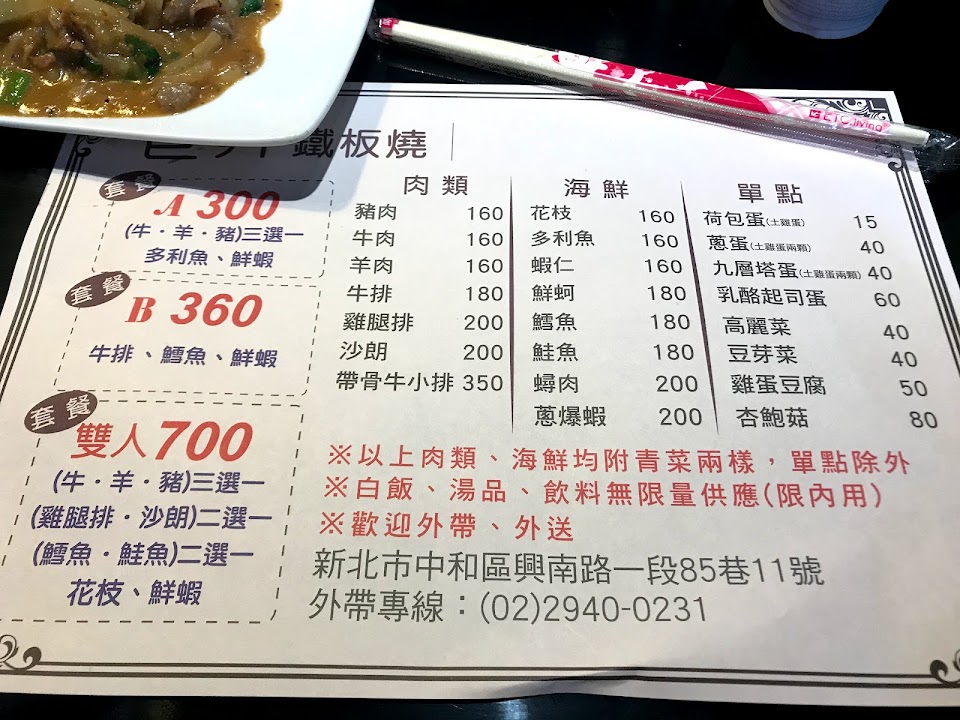 鐵板燒
套餐
A 300
(牛·羊·豬)三選一
多利魚、鮮蝦
套餐
B 360
牛排、鱈魚、鮮蝦
套餐
雙人700
(牛·羊·豬)三選一
(雞腿排·沙朗)二選一
(鱈魚·鮭魚)二選一
花枝、鮮蝦
肉類
豬肉 160
牛肉 160
羊肉 160
牛排 180
雞腿排 200
沙朗 200
帶骨牛小排 350
海鮮
花枝 160
多利魚 160
蝦仁 160
鮮蚵 180
鱈魚 180
鮭魚 180
蟳肉 200
蔥爆蝦 200
單點
荷包蛋(土雞蛋) 15
蔥蛋(土雞蛋兩顆) 40
九層塔蛋(土雞蛋兩顆) 40
乳酪起司蛋 60
高麗菜 40
豆芽菜 40
雞蛋豆腐 50
杏鮑菇 80
※以上肉類、海鮮均附青菜兩樣，單點除外
※白飯、湯品、飲料無限量供應(限內用)
※歡迎外帶、外送
新北市中和區興南路一段85巷11號
外帶專線：(02)2940-0231